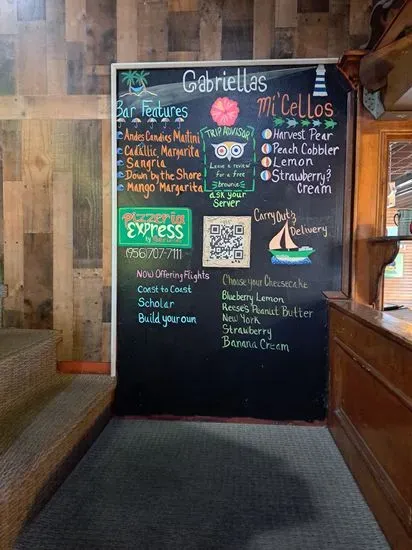 Gabriellas
Bar Features
Andes Candies Martini
Cadillic Margarita
Sangria
Down by the Shore
Mango Margarita
TRIP ADVISOR
Leave a review
for a free
brownie
ask your
Server
Mi'Cellos
Harvest Pear
Peach Cobbler
Lemon
Strawberry &
Cream
Pizzeria
EXPRESS
(956)707-7111
Carry Out &
Delivery
Now Offering Flights
Coast to Coast
Scholar
Build your own
Choose your Cheesecake
Blueberry Lemon
Reese's Peanut Butter
New York
Strawberry
Banana Cream